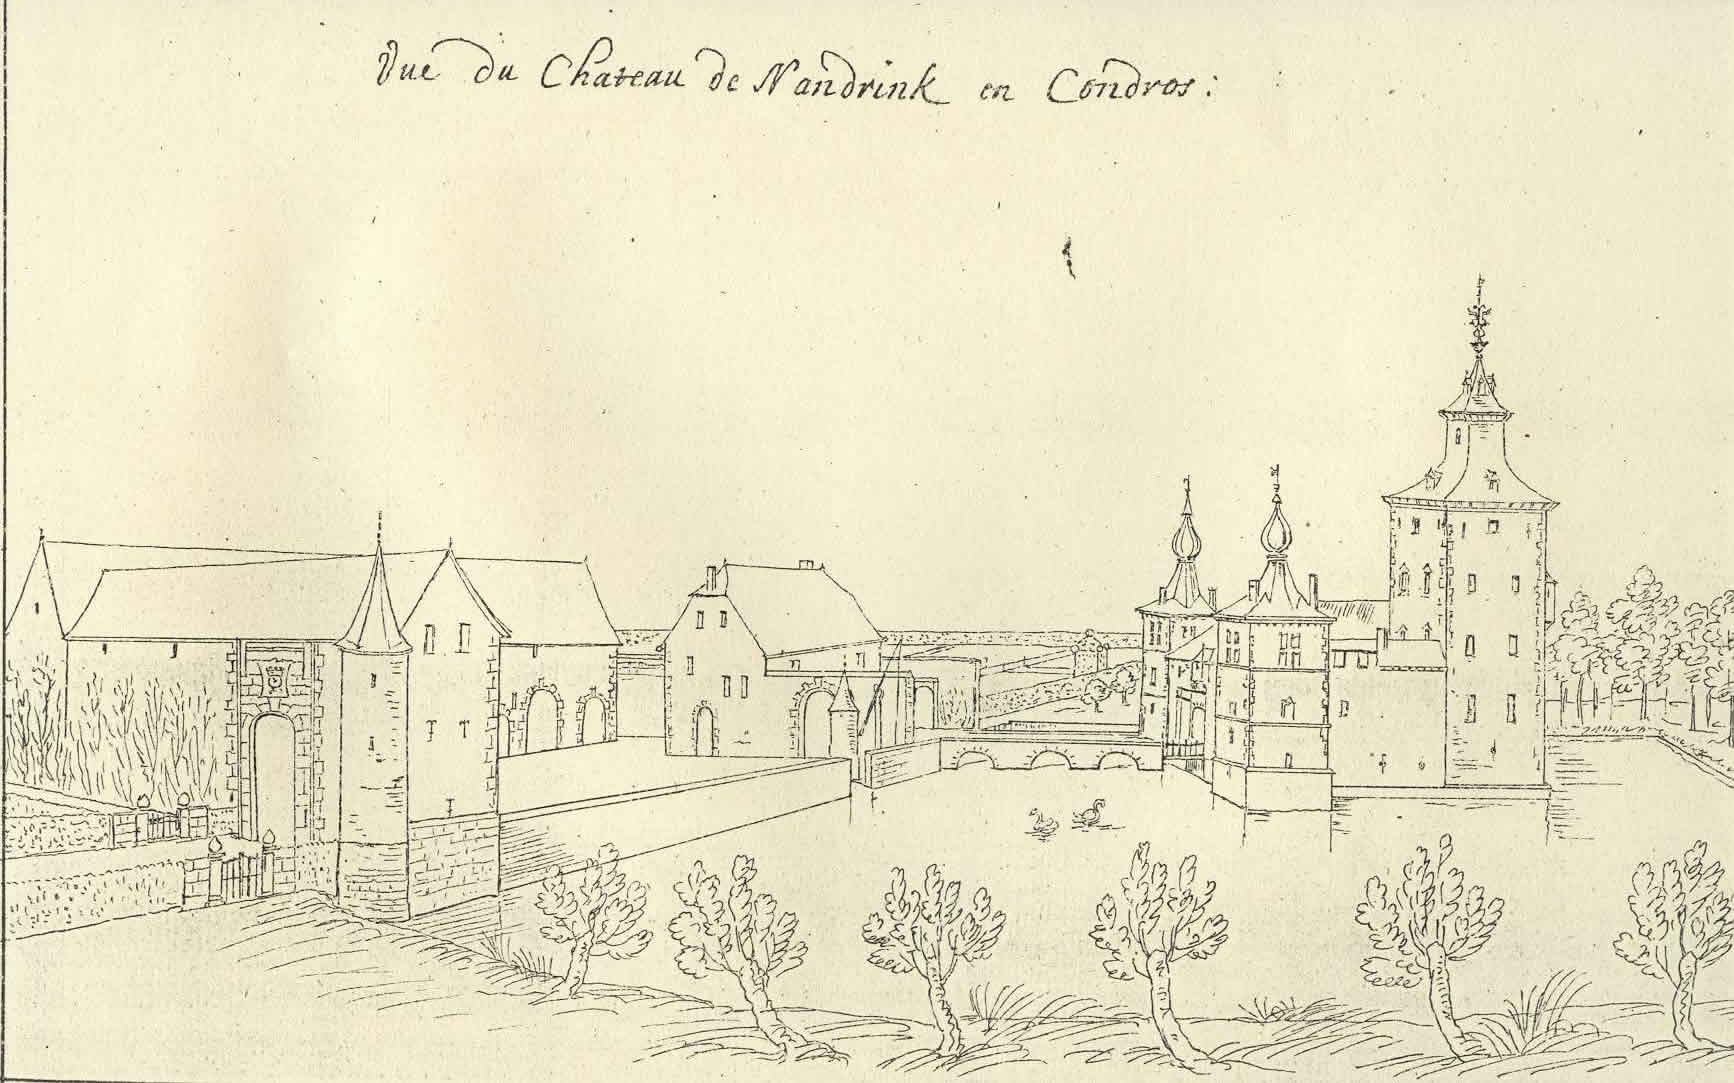 Vue du Chateau de Nandrink en Condros: